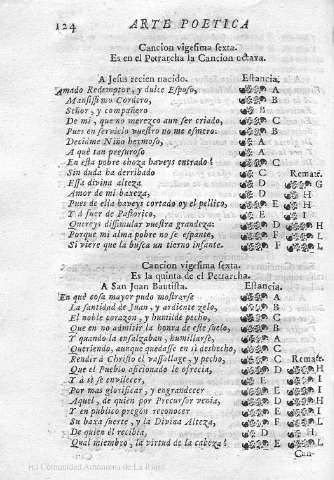 124 ARTE POETICA
Cancion vigesima sexta.
Es en el Petrarcha la Cancion octava.
A Jesus recien nacido. Estancia.
Amado Redemptor, y dulce Esposo, A
Mansissimo Cordero, B
Señor, y compañero B
De mi, que no merezco aun ser criado, C
Pues en servicio vuestro no me esmero: B
Decidme Nino hermoso, A
A què tan presuroso A
En esta pobre choza haveys entrado? C
Sin duda ha derribado C Remate.
Essa divina alteza D G
Amor de mi baxeza, D H
Pues de ella haveys cortado oy el pellico, E H
Y à fuer de Pastorico, E I
Quereys dissimular vuestra grandeza: D H
Porque mi alma pobre no se espante, F L
Si viere que la busca un tierno infante. F L
Cancion vigesima sexta.
Es la quinta de el Petrarcha.
A San Juan Bautista. Estancia.
En què cosa mayor pudo mostrarse A
La santidad de Juan, y ardiente zelo, B
El noble corazon, y humilde pecho, C
Que en no admitir la honra de este suelo, B
Y quando la ensalzaban, humillarse, A
Queriendo, aunque quedasse en si deshecho, C
Rendir à Christo el vassallage, y pecho, C Remate.
Que el Pueblo aficionado le ofrecia, D H
Y à sì se envilecer, E I
Por mas glorificar, y engrandecer E I
Aquel, de quien por Precursor venia, D H
Y en publico pregon reconocer E I
Su baxa suerte, y la Divina Alteza, F L
De quien èl recibia, D H
Qual miembro, la virtud de la cabeza? F L
Can-
(c) Comunidad Autónoma de La Rioja